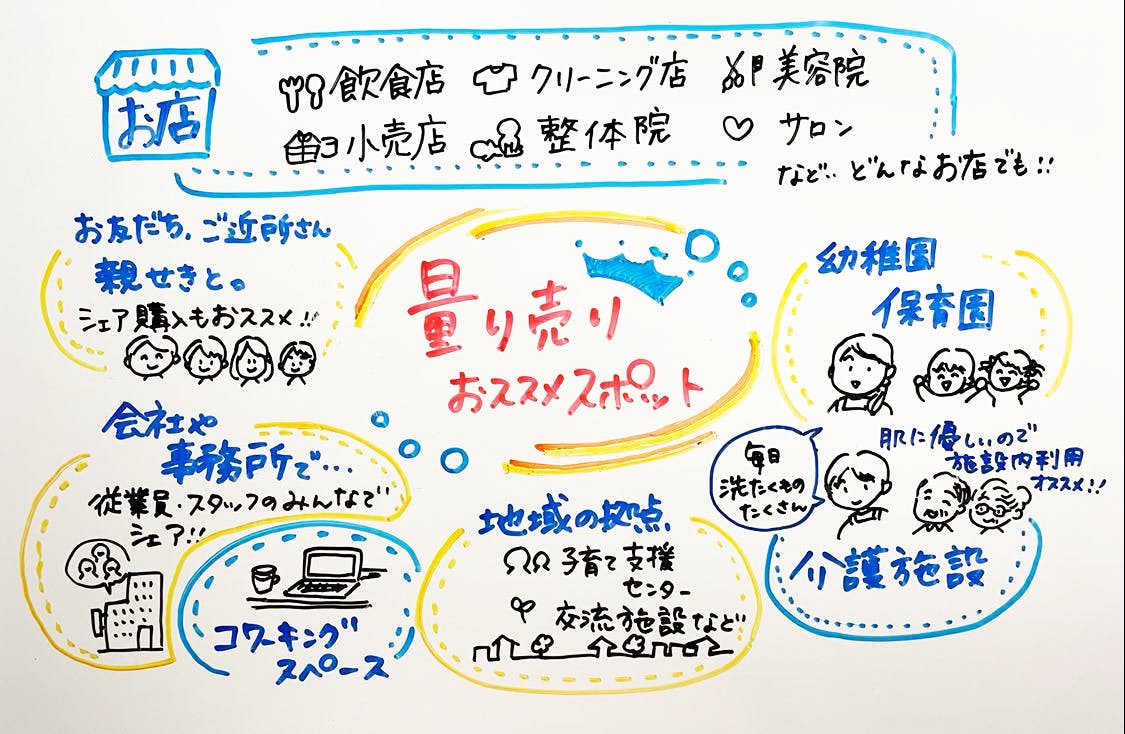 お店
飲食店 クリーニング店 美容院
小売店 整体院 サロン
など‥どんなお店でも!!
お友だち、ご近所さん
親せきと。
シェア購入もおススメ!!
量り売り
おススメスポット
幼稚園
保育園
会社や
事務所で…
従業員・スタッフのみんなで
シェア!!
コワーキング
スペース
地域の拠点
子育て支援
センター
交流施設など
毎日
洗たくもの
たくさん
肌に優しいので
施設内利用
オススメ!!
介護施設